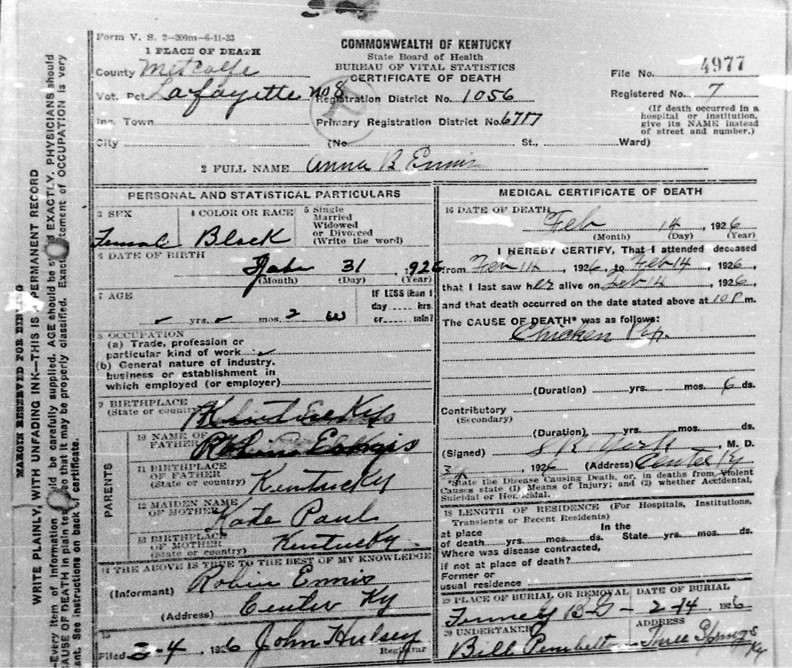 Form V. S. 2-209m-6-11-23
1 PLACE OF DEATH
County Metcalfe
Vot. Pct Lafayette No 8
Inc. Town
City
COMMONWEALTH OF KENTUCKY
State Board of Health
BUREAU OF VITAL STATISTICS
CERTIFICATE OF DEATH
Registration District No. 1056
Primary Registration District No.
(No. St., Ward)
File No. 4977
Registered No. 7
(If death occurred in a
hospital or institution,
give its NAME instead
of street and number.)
2 FULL NAME Anna B Ennis
PERSONAL AND STATISTICAL PARTICULARS
3 SEX
Female
4 COLOR OR RACE
Black
5 Single
Married
Widowed
or Divorced
(Write the word)
6 DATE OF BIRTH
31
(Month) (Day) (Year)
7 AGE
yrs. mos. 2 W
IF LESS than 1
day hrs.
or min?
8 OCCUPATION
(a) Trade, profession or
particular kind of work
(b) General nature of industry,
business or establishment in
which employed (or employer)
9 BIRTHPLACE
(State or country)
PARENTS
10 NAME OF
FATHER
11 BIRTHPLACE
OF FATHER
(State or country) Kentucky
12 MAIDEN NAME
OF MOTHER Kate Paul
13 BIRTHPLACE
OF MOTHER
(State or country) Kentucky
14 THE ABOVE IS TRUE TO THE BEST OF MY KNOWLEDGE
(Informant) Robin Ennis
(Address) Center Ky
15
Filed 3-4, 1926 John Hulsey
Registrar
MEDICAL CERTIFICATE OF DEATH
16 DATE OF DEATH
Feb 14, 1926
(Month) (Day) (Year)
I HEREBY CERTIFY, That I attended deceased
from 1926, to Feb 14, 1926
that I last saw her alive on Feb 14, 1926,
and that death occurred on the date stated above at 10 P m.
The CAUSE OF DEATH* was as follows:
Chicken Pox
(Duration) yrs. mos. 6 ds.
Contributory
(Secondary)
(Duration) yrs. mos. ds.
(Signed) M. D.
1926 (Address) Center Ky
*State the Disease Causing Death, or, in deaths from Violent
Causes state (1) Means of Injury; and (2) whether Accidental,
Suicidal or Homicidal.
18 LENGTH OF RESIDENCE (For Hospitals, Institutions,
Transients or Recent Residents)
at place In the
of death yrs. mos. ds. State yrs. mos. ds.
Where was disease contracted,
if not at place of death?
Former or
usual residence
19 PLACE OF BURIAL OR REMOVAL DATE OF BURIAL
B G - 2-14 1926
20 UNDERTAKER ADDRESS
Bill Three Springs
Ky
MARGIN RESERVED FOR BINDING
WRITE PLAINLY, WITH UNFADING INK—THIS IS A PERMANENT RECORD
Every item of information should be carefully supplied. AGE should be EXACTLY. PHYSICIANS should
CAUSE OF DEATH in plain so that it may be properly classified. Exact statement of OCCUPATION is very
See instructions on back of certificate.